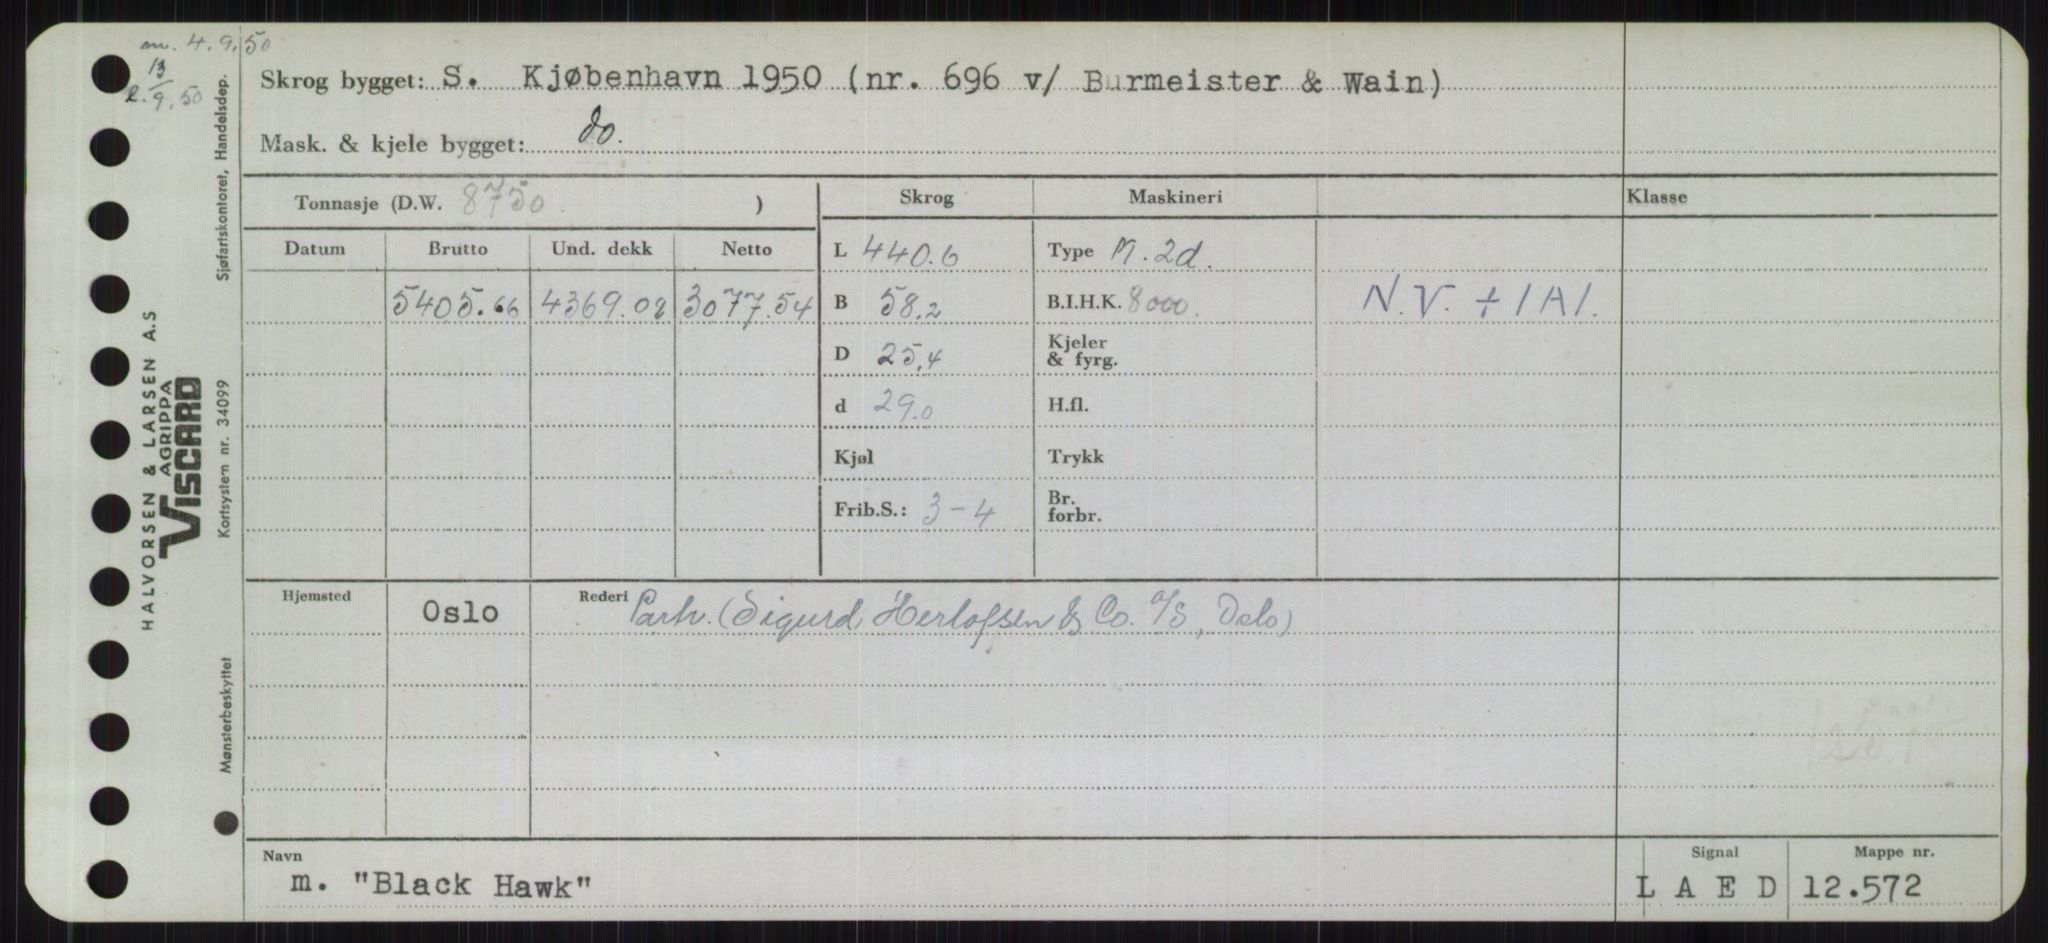 m. 4.9.50
R. 13/9.50
Skrog bygget: S. Kjøbenhavn 1950 (nr. 696 v/ Burmeister & Wain)
Mask. & kjele bygget: do.
Tonnasje (D.W. 8750 )
Skrog Maskineri Klasse
Datum Brutto Und. dekk Netto
L 440.6 Type M. 2d.
5405.66 4369.08 3077.54 B 58.2 B.I.H.K. 8000. N.V. + 1A1.
D 25.4 Kjeler
& fyrg.
d 29.0 H.fl.
Kjøl Trykk
Frib.S.: 3-4 Br.
forbr.
Hjemsted Oslo Rederi Parh. (Sigurd Herlofsen & Co. A/S, Oslo)
Navn
m. "Black Hawk"
Signal Mappe nr.
L A E D 12.572
HALVORSEN & LARSEN A.S
AGRIPPA
VISCARD
Mønsterbeskyttet Kortsystem nr. 34099 Sjøfartskontoret, Handelsdep.